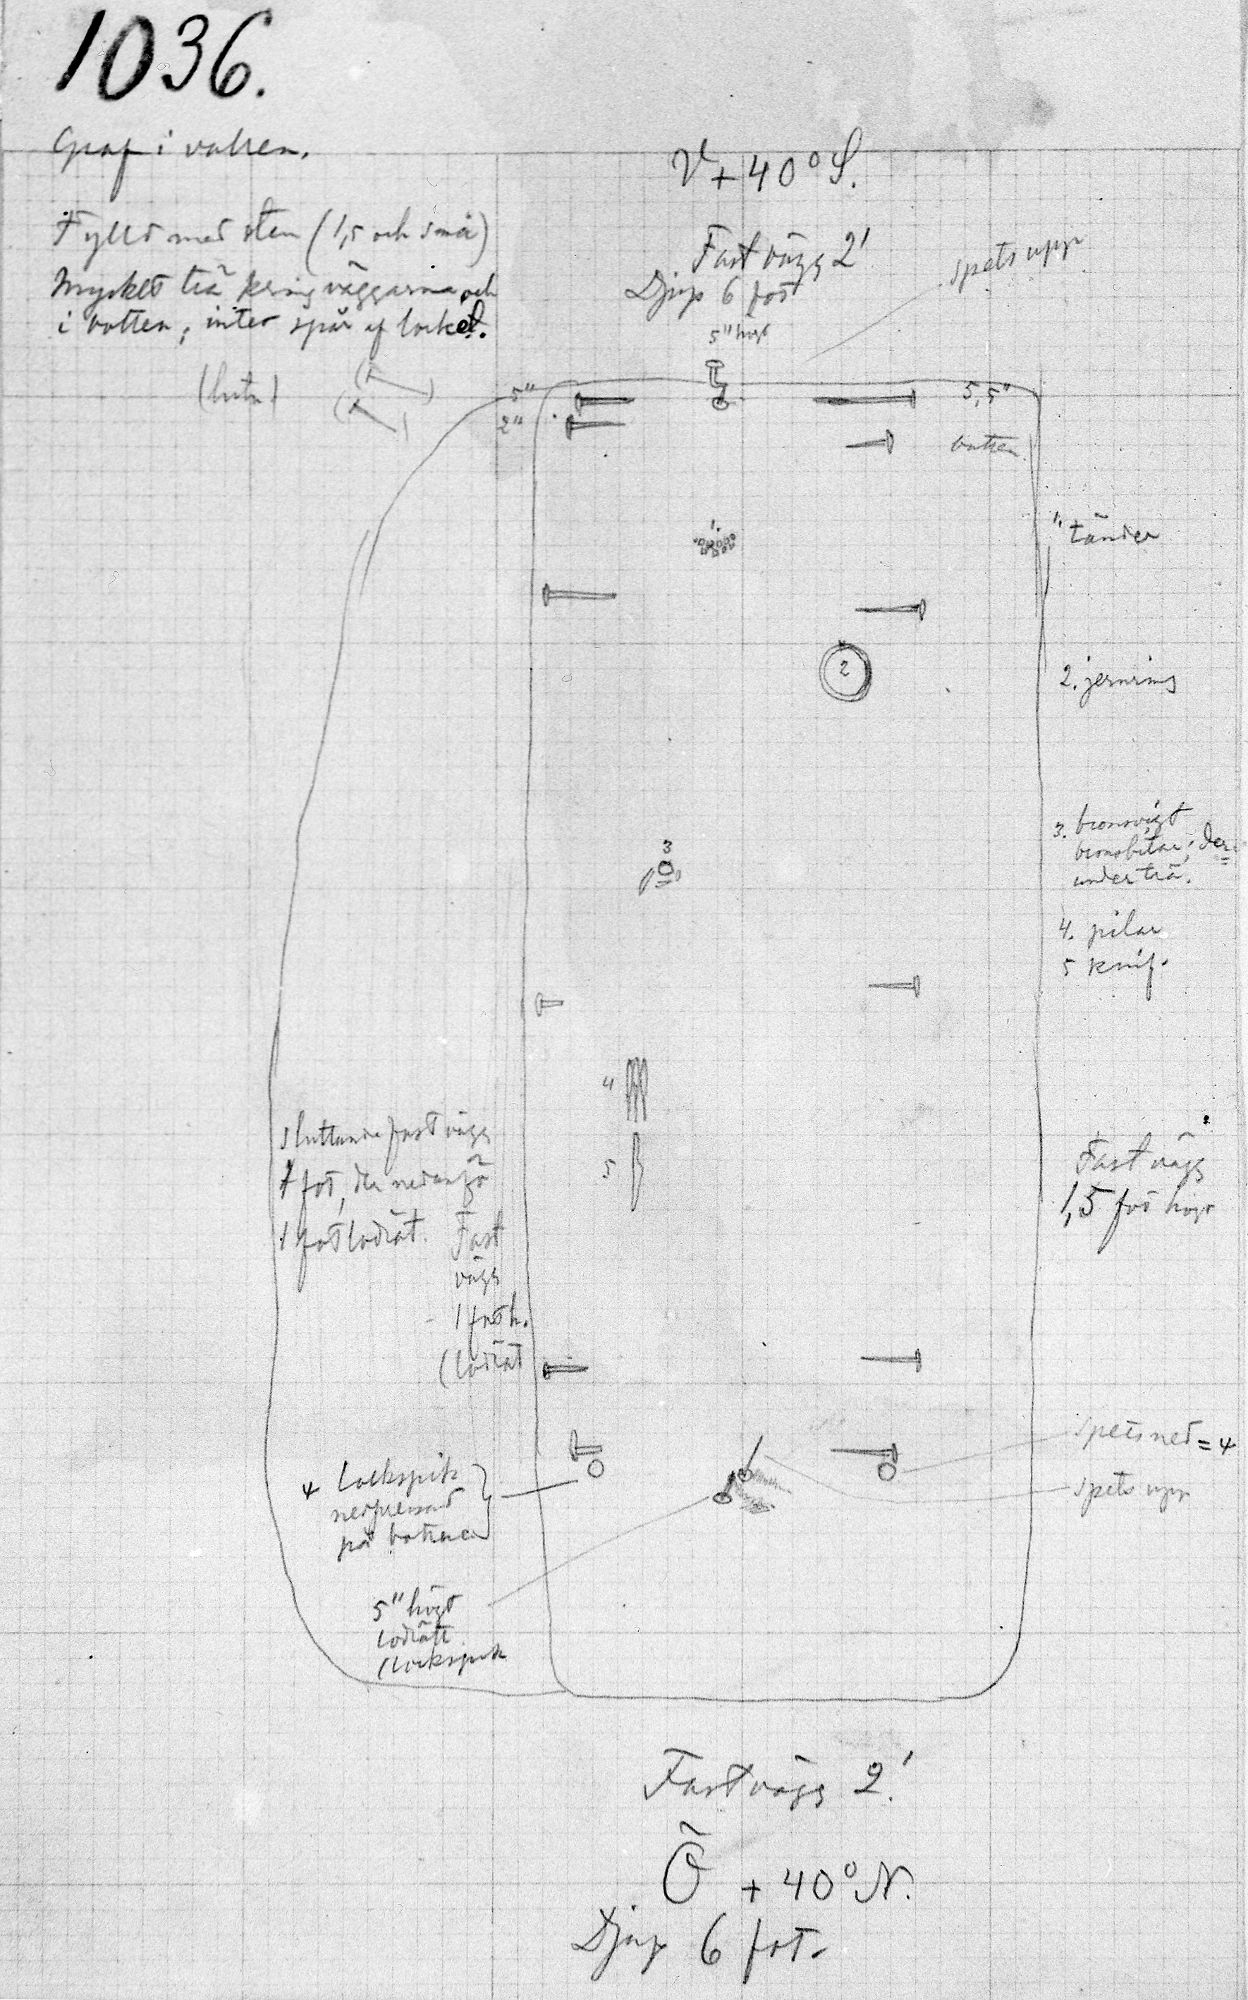 1036.
Graf i vatten.
V + 40° S.
Fylld med sten (1,5 och små)
Mycket trä kring väggarna och
i botten; intet spår af locket.
Fast vägg 2'
Djup 6 fot
5" högt
spets upp
5"
2"
5,5"
botten
1.
1. tänder
2
2. jernring
3
3. bronsvigt
bronsbitar; der
under trä.
4. pilar
5 knif.
4
5
sluttande fast vägg
1 fot, der nedanför
1 fot lodrät.
Fast
vägg
1 fot h.
(lodrät
Fast vägg
1,5 fot högt
4 lockspik
nedpressad
på bottnen
spets ned = 4
spets upp
5" högt
lodrätt
(lockspik
Fast vägg 2'
Ö + 40° N.
Djup 6 fot.